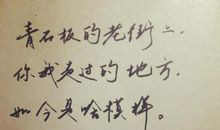 青石板的老街上，
你我走过的地方，
如今是啥模样。